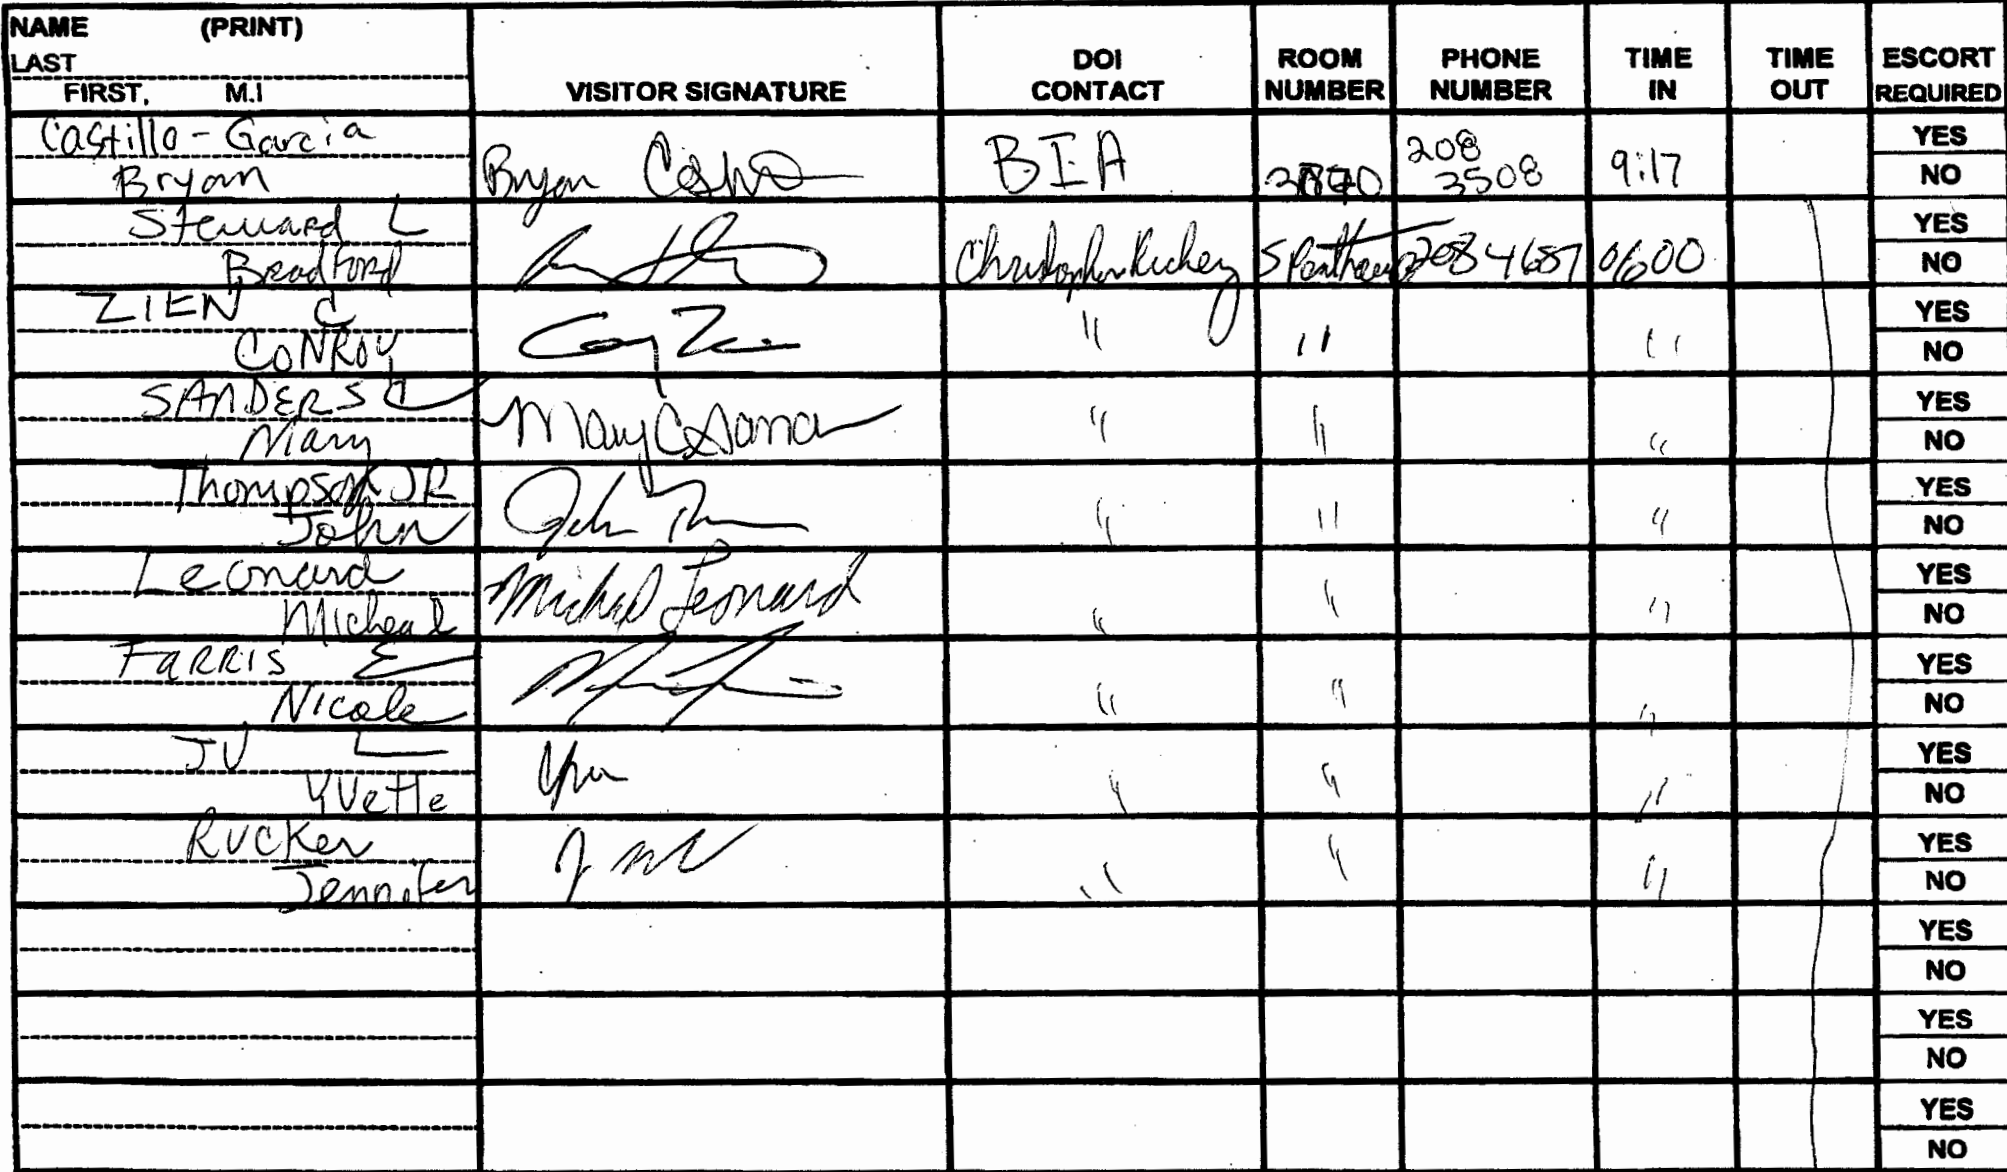 NAME (PRINT)
LAST
FIRST, M.I
VISITOR SIGNATURE
DOI CONTACT
ROOM NUMBER
PHONE NUMBER
TIME IN
TIME OUT
ESCORT REQUIRED
Castillo-Garcia
Bryan
Bryan
BIA
208
3508
9:17
YES
NO
Steward L
Bradford
Christopher Richey
208 4687
0600
YES
NO
ZIEN C
CONROY
"
"
"
YES
NO
SANDERS C
Mary
Mary C
"
"
"
YES
NO
Thompson JR
John
John
"
"
"
YES
NO
Leonard
Micheal
Micheal Leonard
"
"
"
YES
NO
FARRIS E
Nicole
"
"
"
YES
NO
JV L
YVette
"
"
"
YES
NO
Rucker
Jennifer
"
"
"
YES
NO
YES
NO
YES
NO
YES
NO